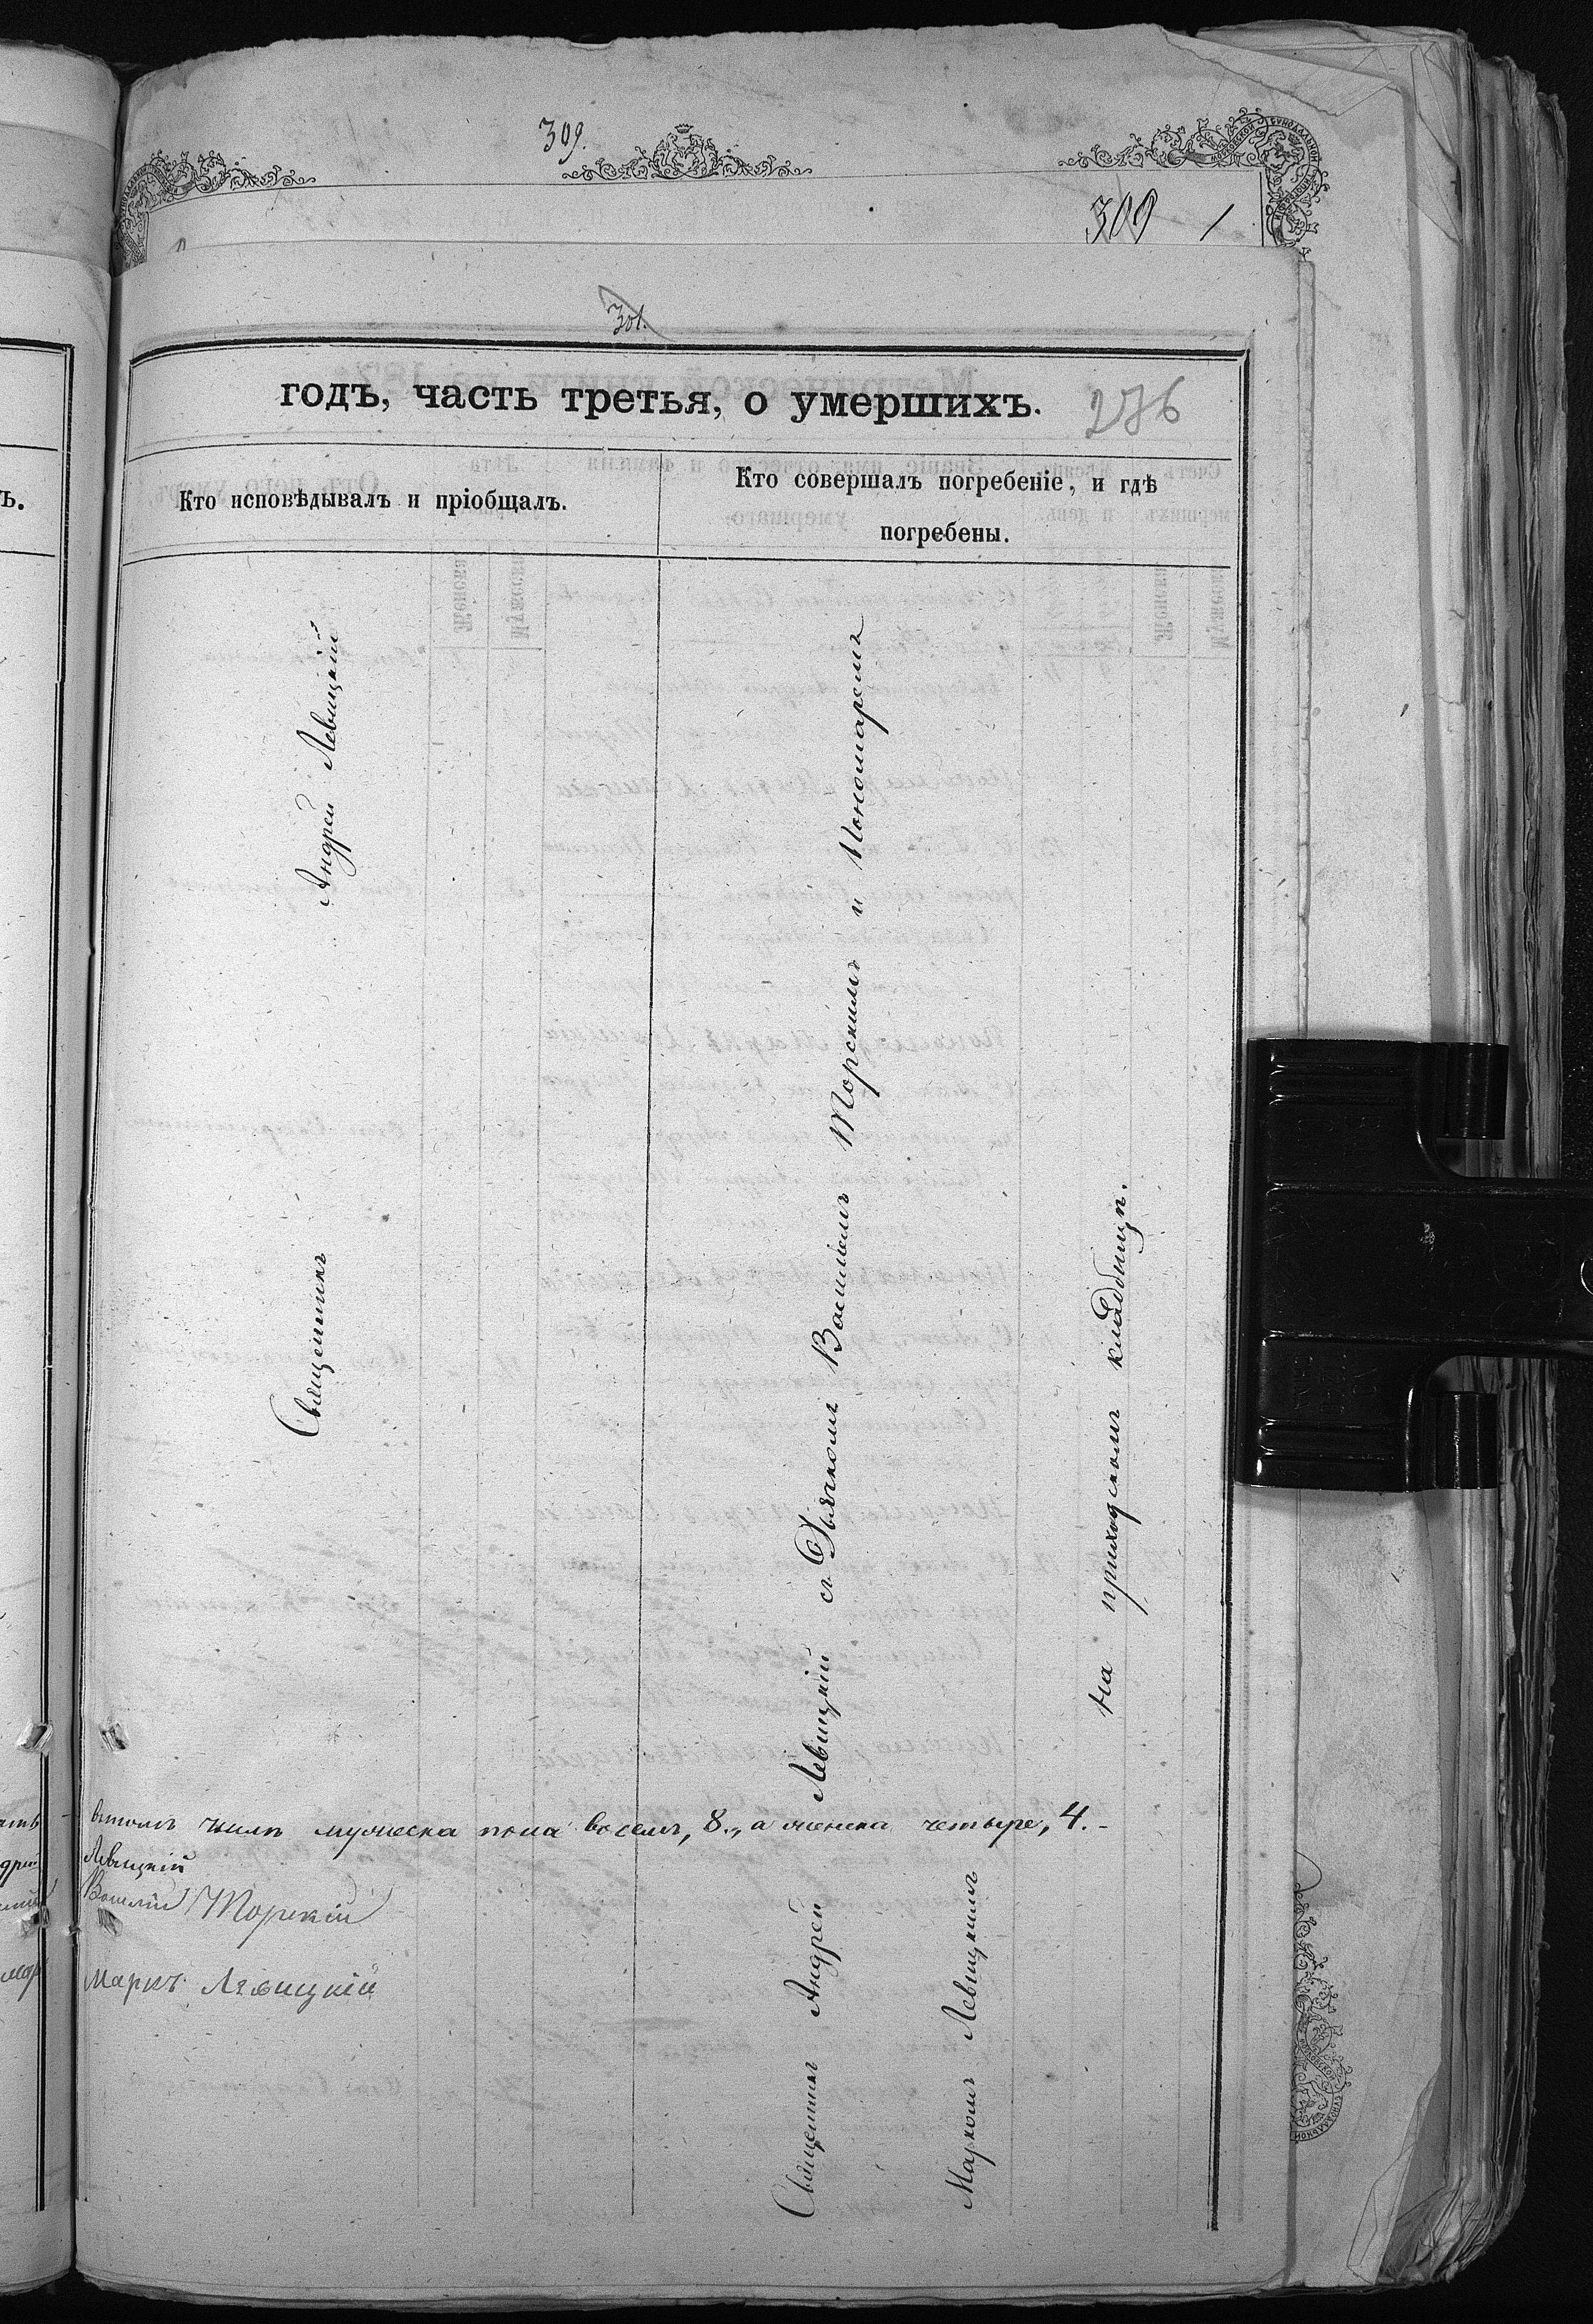 309.
309 1
301.
годъ, часть третья, о умершихъ. 276
Кто исповѣдывалъ и пріобщалъ.
Кто совершалъ погребеніе, и гдѣ
погребены.
Священникъ Андрей Левицкій
Священникъ Андрей Левицкій съ Дьячкомъ Василіемъ Торскимъ и Пономаремъ
Маркомъ Левицкимъ
на приходскомъ кладбищѣ.
втомъ числѣ мужеска пола восемь, 8., а женска четыре, 4.-
Левицкій
Василій Торскій
Маркъ Левицкій